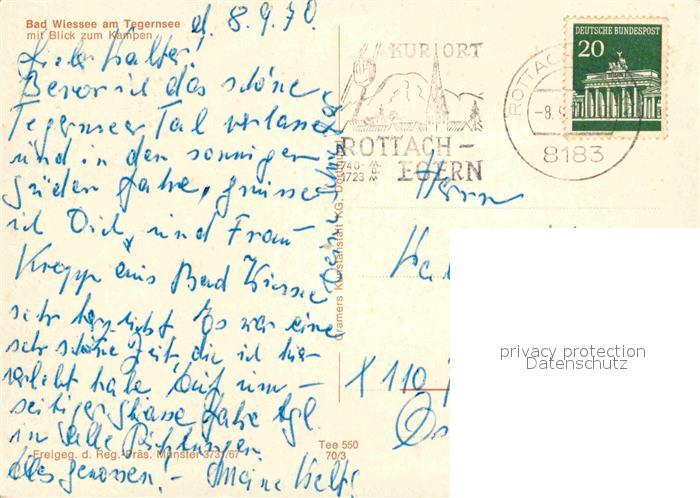 Bad Wiessee am Tegernsee
mit Blick zum Kampen
d. 8.9.70.
Lieber Walter!
Bevor ich das schöne
Tegernseer Tal verlasse
und in den sonnigen
Süden fahre, grüsse
ich Dich und Frau
Krepp aus Bad Wiessee
sehr herzlichst. Es war eine
sehr schöne Zeit, die ich hier
verlebt habe. Mit um-
seitiger fahre tgl.
in alle Richtungen.
alles genossen. -
KURORT
ROTTACH-
EGERN
740-
1723 m
ROTTACH
-8.9
8183
DEUTSCHE BUNDESPOST
20
Herrn
110
Cramers Kunstanstalt KG, Dortmund
Freigeg. d. Reg.-Präs. Münster 3731/67
Tee 550
70/3
privacy protection
Datenschutz